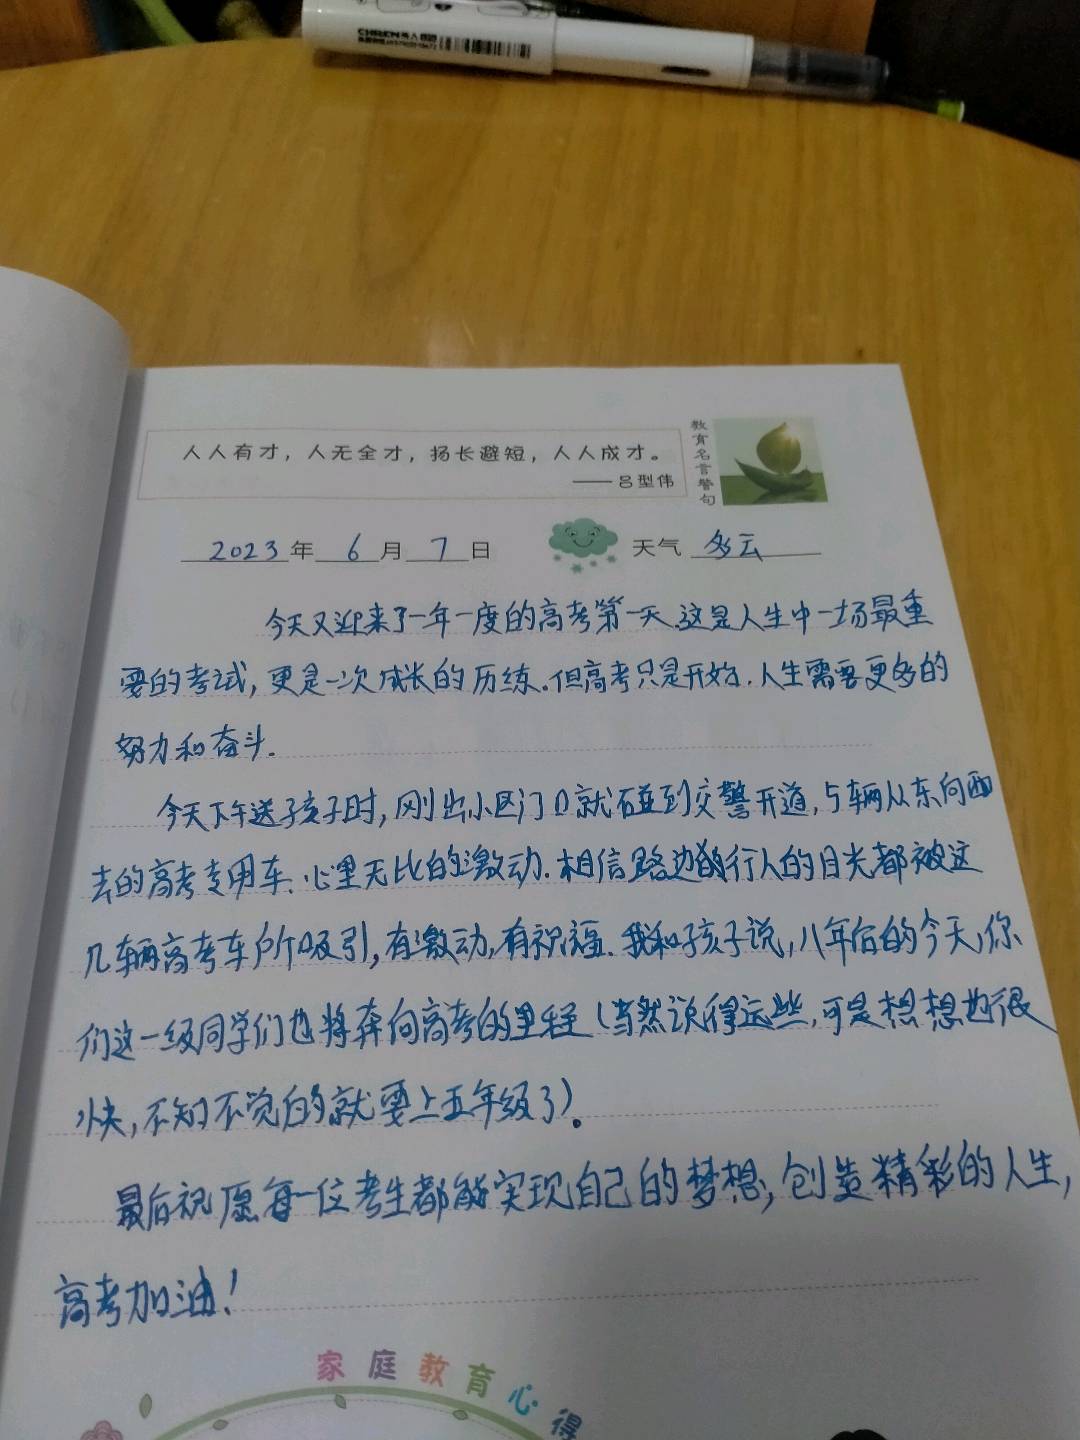 CHIREN
人人有才，人无全才，扬长避短，人人成才。
——吕型伟
教育名言警句
2023年6月7日 天气 多云
今天又迎来了一年一度的高考第一天.这是人生中一场最重
要的考试,更是一次成长的历练.但高考只是开始.人生需要更多的
努力和奋斗.
今天下午送子孩子时,刚出小区门口就碰到交警开道,5辆从东向西
去的高考专用车.心里无比的激动.相信路边的行人的目光都被这
几辆高考车所吸引,有激动,有祝福.我和孩子说,八年后的今天,你
们这一级同学们也将奔向高考的里程(当然说得远些,可是想想也很
快,不知不觉的就要上五年级了)。
最后祝愿每一位考生都能实现自己的梦想,创造精彩的人生,
高考加油!
家庭教育心得